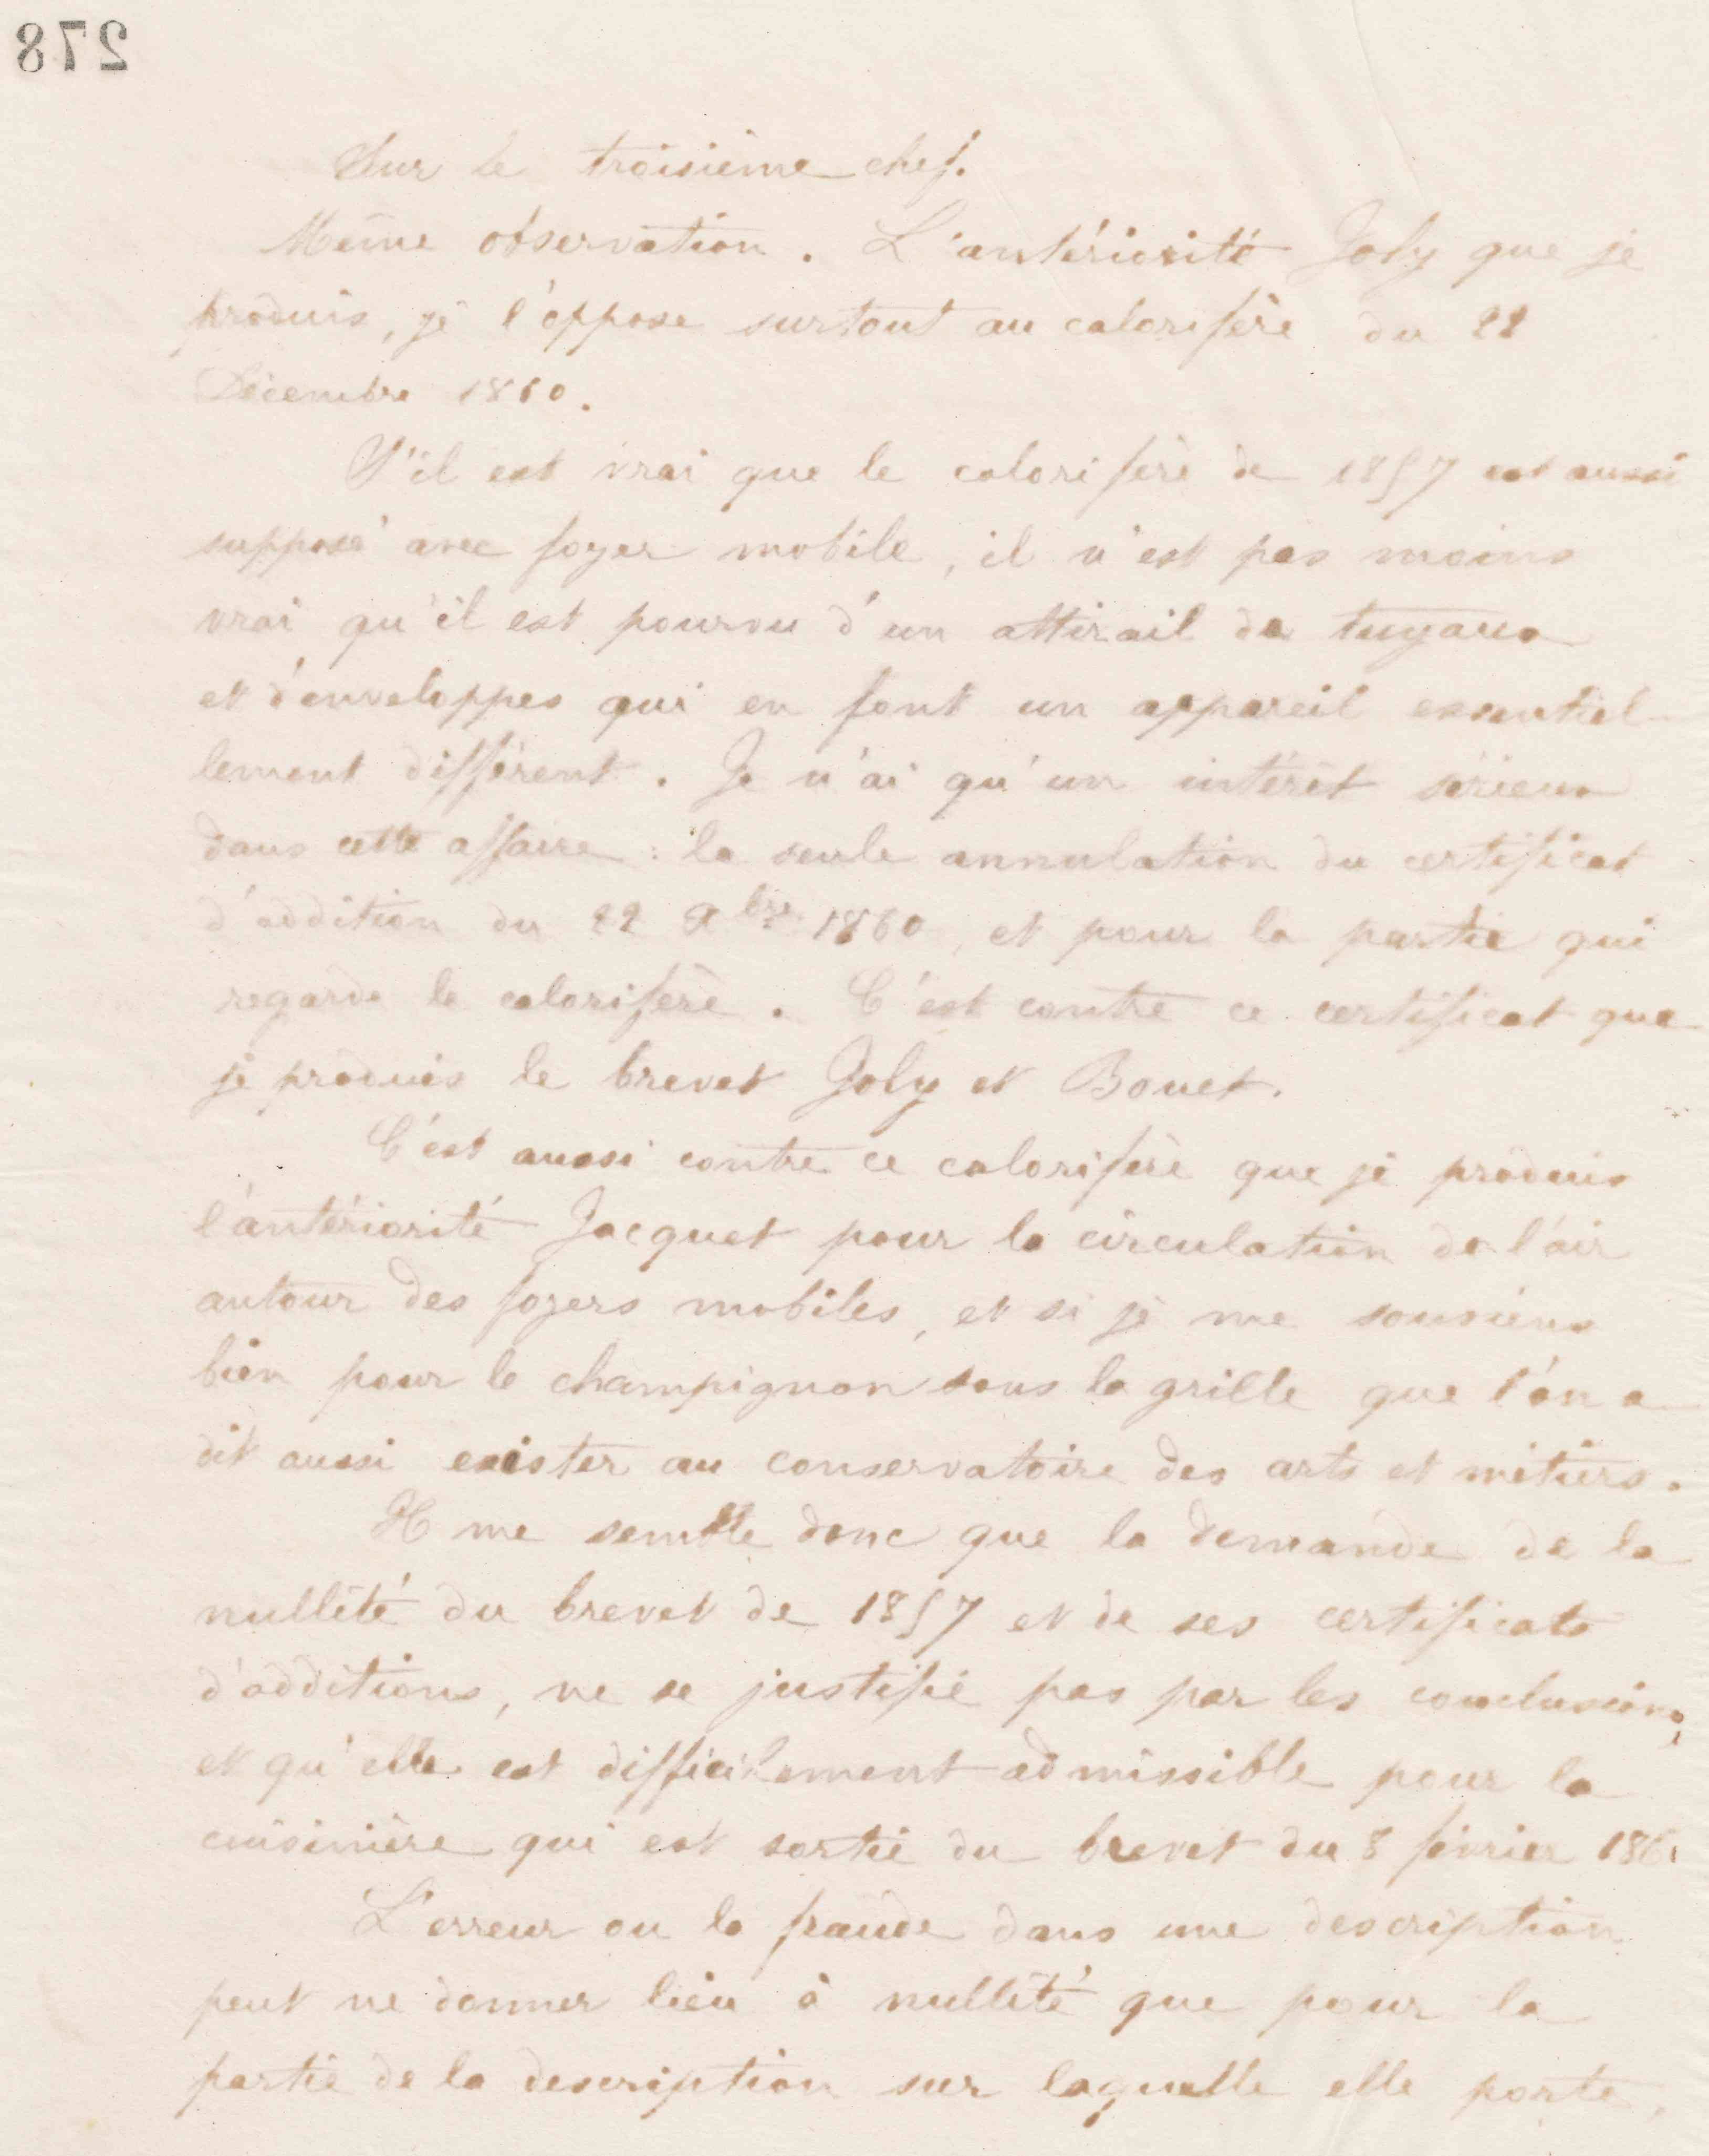 278
Sur le troisième chef.
Même observation. L'antériorité Joly que je
produis, je l'oppose surtout au calorifère du 22
Décembre 1860.
S'il est vrai que le calorifère de 1857 est aussi
supposé avec foyer mobile, il n'est pas moins
vrai qu'il est pourvu d'un attirail de tuyaux
et d'enveloppes qui en font un appareil essentiel
lement différent. Je n'ai qu'un intérêt sérieux
dans cette affaire : la seule annulation du certificat
d'addition du 22 Xbre 1860, et pour la partie qui
regarde le calorifère. C'est contre ce certificat que
je produis le brevet Joly et Bouet.
C'est aussi contre ce calorifère que je produis
l'antériorité Jacquet pour la circulation de l'air
autour des foyers mobiles, et si je me souviens
bien pour le champignon sous la grille que l'on a
dit aussi exister au conservatoire des arts et métiers.
Il me semble donc que la demande de la
nullité du brevet de 1857 et de ses certificats
d'additions, ne se justifie pas par les conclusions,
et qu'elle est difficilement admissible pour la
cuisinière qui est sortie du brevet du 8 février 1861
L'erreur ou la fraude dans une description
peut ne donner lieu à nullité que pour la
partie de la description sur laquelle elle porte,